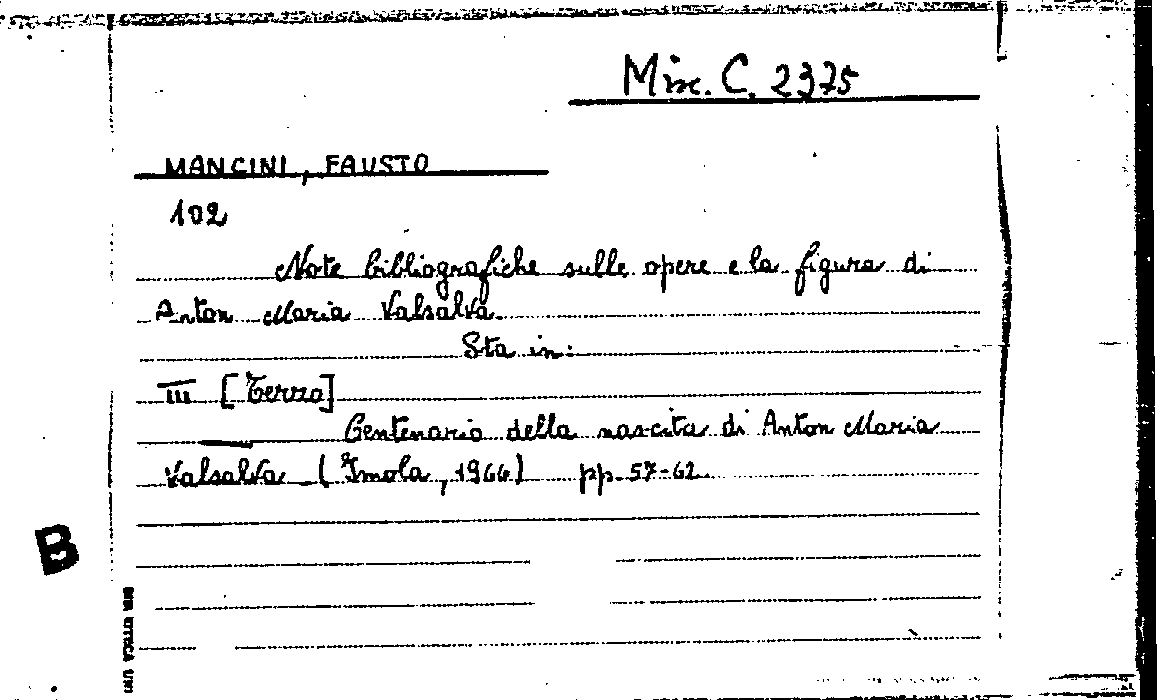 Misc. C. 2375
MANCINI, FAUSTO
102
Note bibliografiche sulle opere e la figura di
Anton Maria Valsalva.
Sta in:
III [Terzo]
Centenario della nascita di Anton Maria
Valsalva (Imola, 1966) pp. 57-62.
B